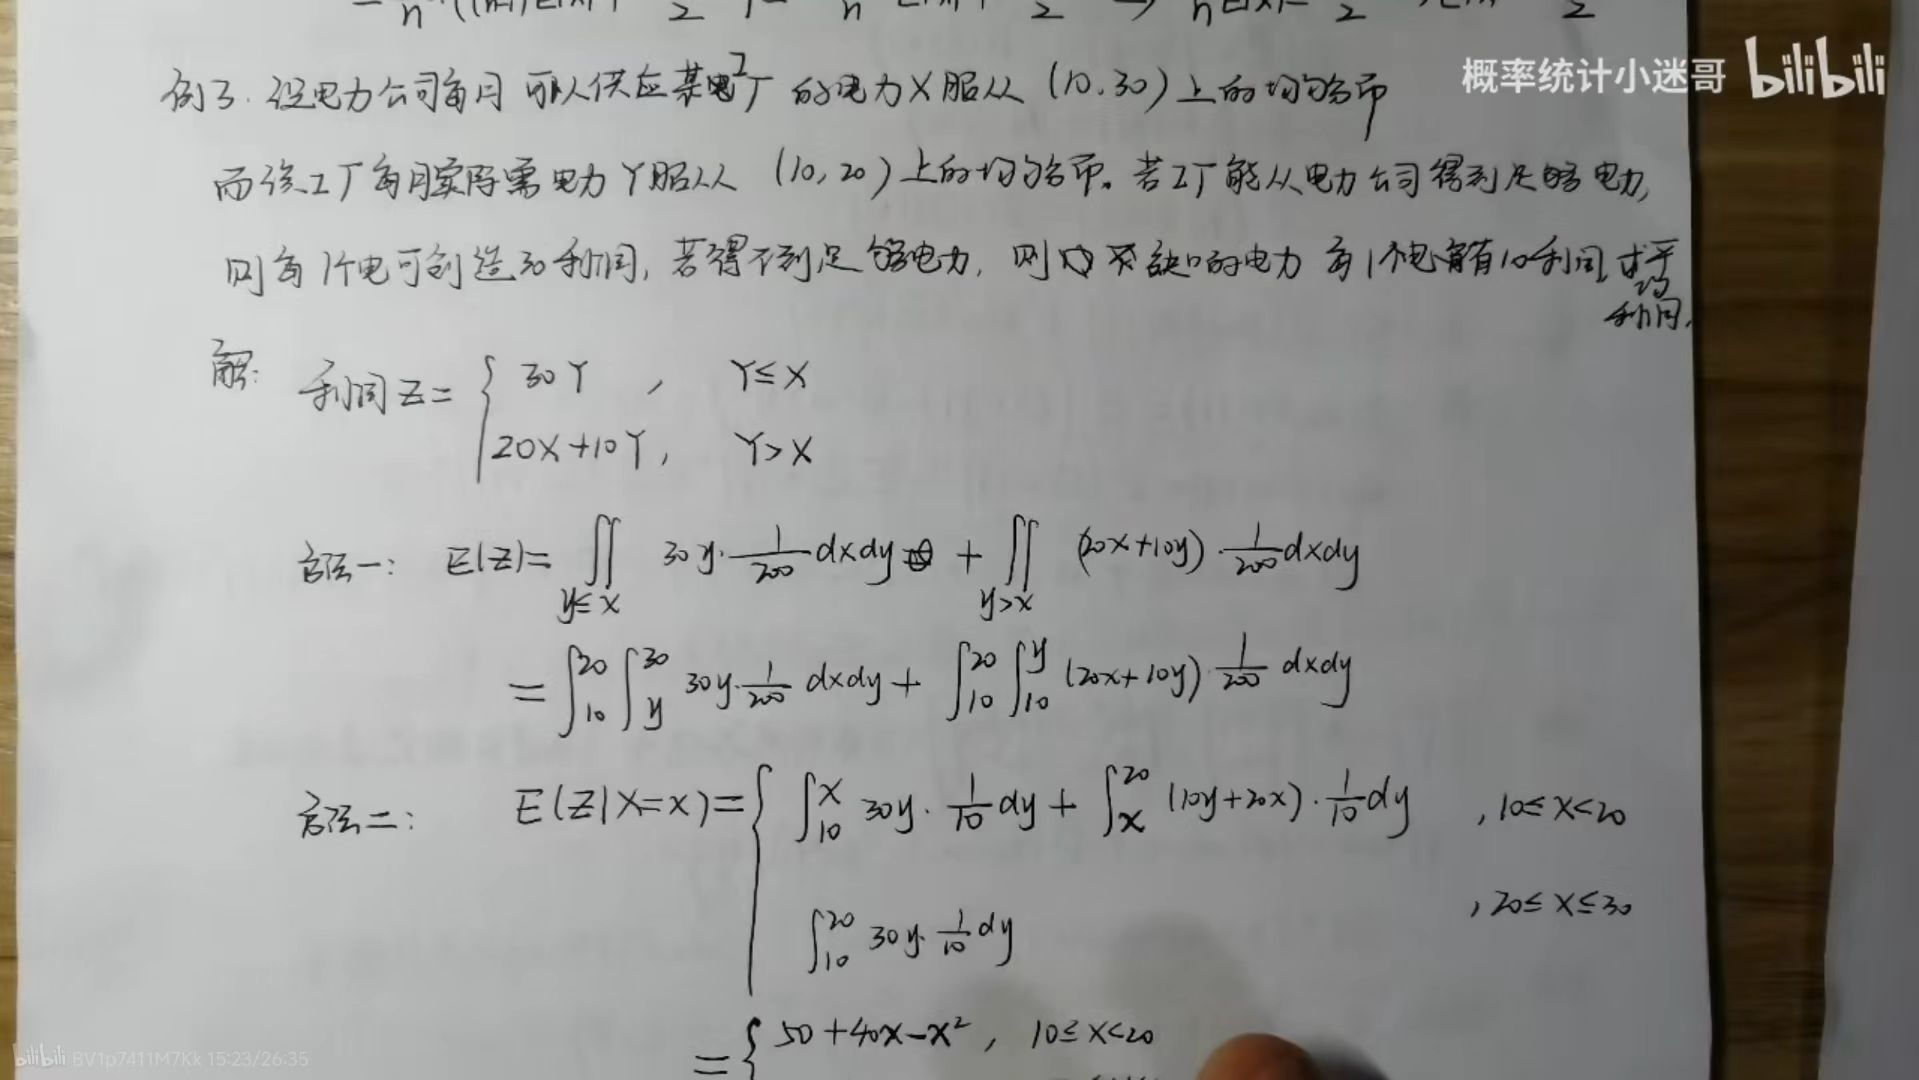 例3. 设电力公司每月可以供应某工厂的电力X服从(10.30)上的均匀分布
而该工厂每月实际需电力Y服从(10,20)上的均匀分布。若工厂能从电力公司得到足够电力,
则每1个电可创造30利润,若得不到足够电力,则缺口的电力每1个电有10利润 求平均利润.
解: 利润Z= { 30Y , Y≤X
20X+10Y, Y>X
方法一: E(Z)= ∬_{y≤x} 30y·1/200 dxdy + ∬_{y>x} (20x+10y)·1/200 dxdy
= ∫_10^20 ∫_y^30 30y·1/200 dxdy + ∫_10^20 ∫_10^y (20x+10y)·1/200 dxdy
方法二: E(Z|X=x)= { ∫_10^x 30y·1/10 dy + ∫_x^20 (10y+20x)·1/10 dy , 10≤x<20
∫_10^20 30y·1/10 dy , 20≤x≤30
= { 50+40x-x², 10≤x<20
概率统计小迷哥 bilibili
bilibili BV1p7411M7Kk 15:23/26:35